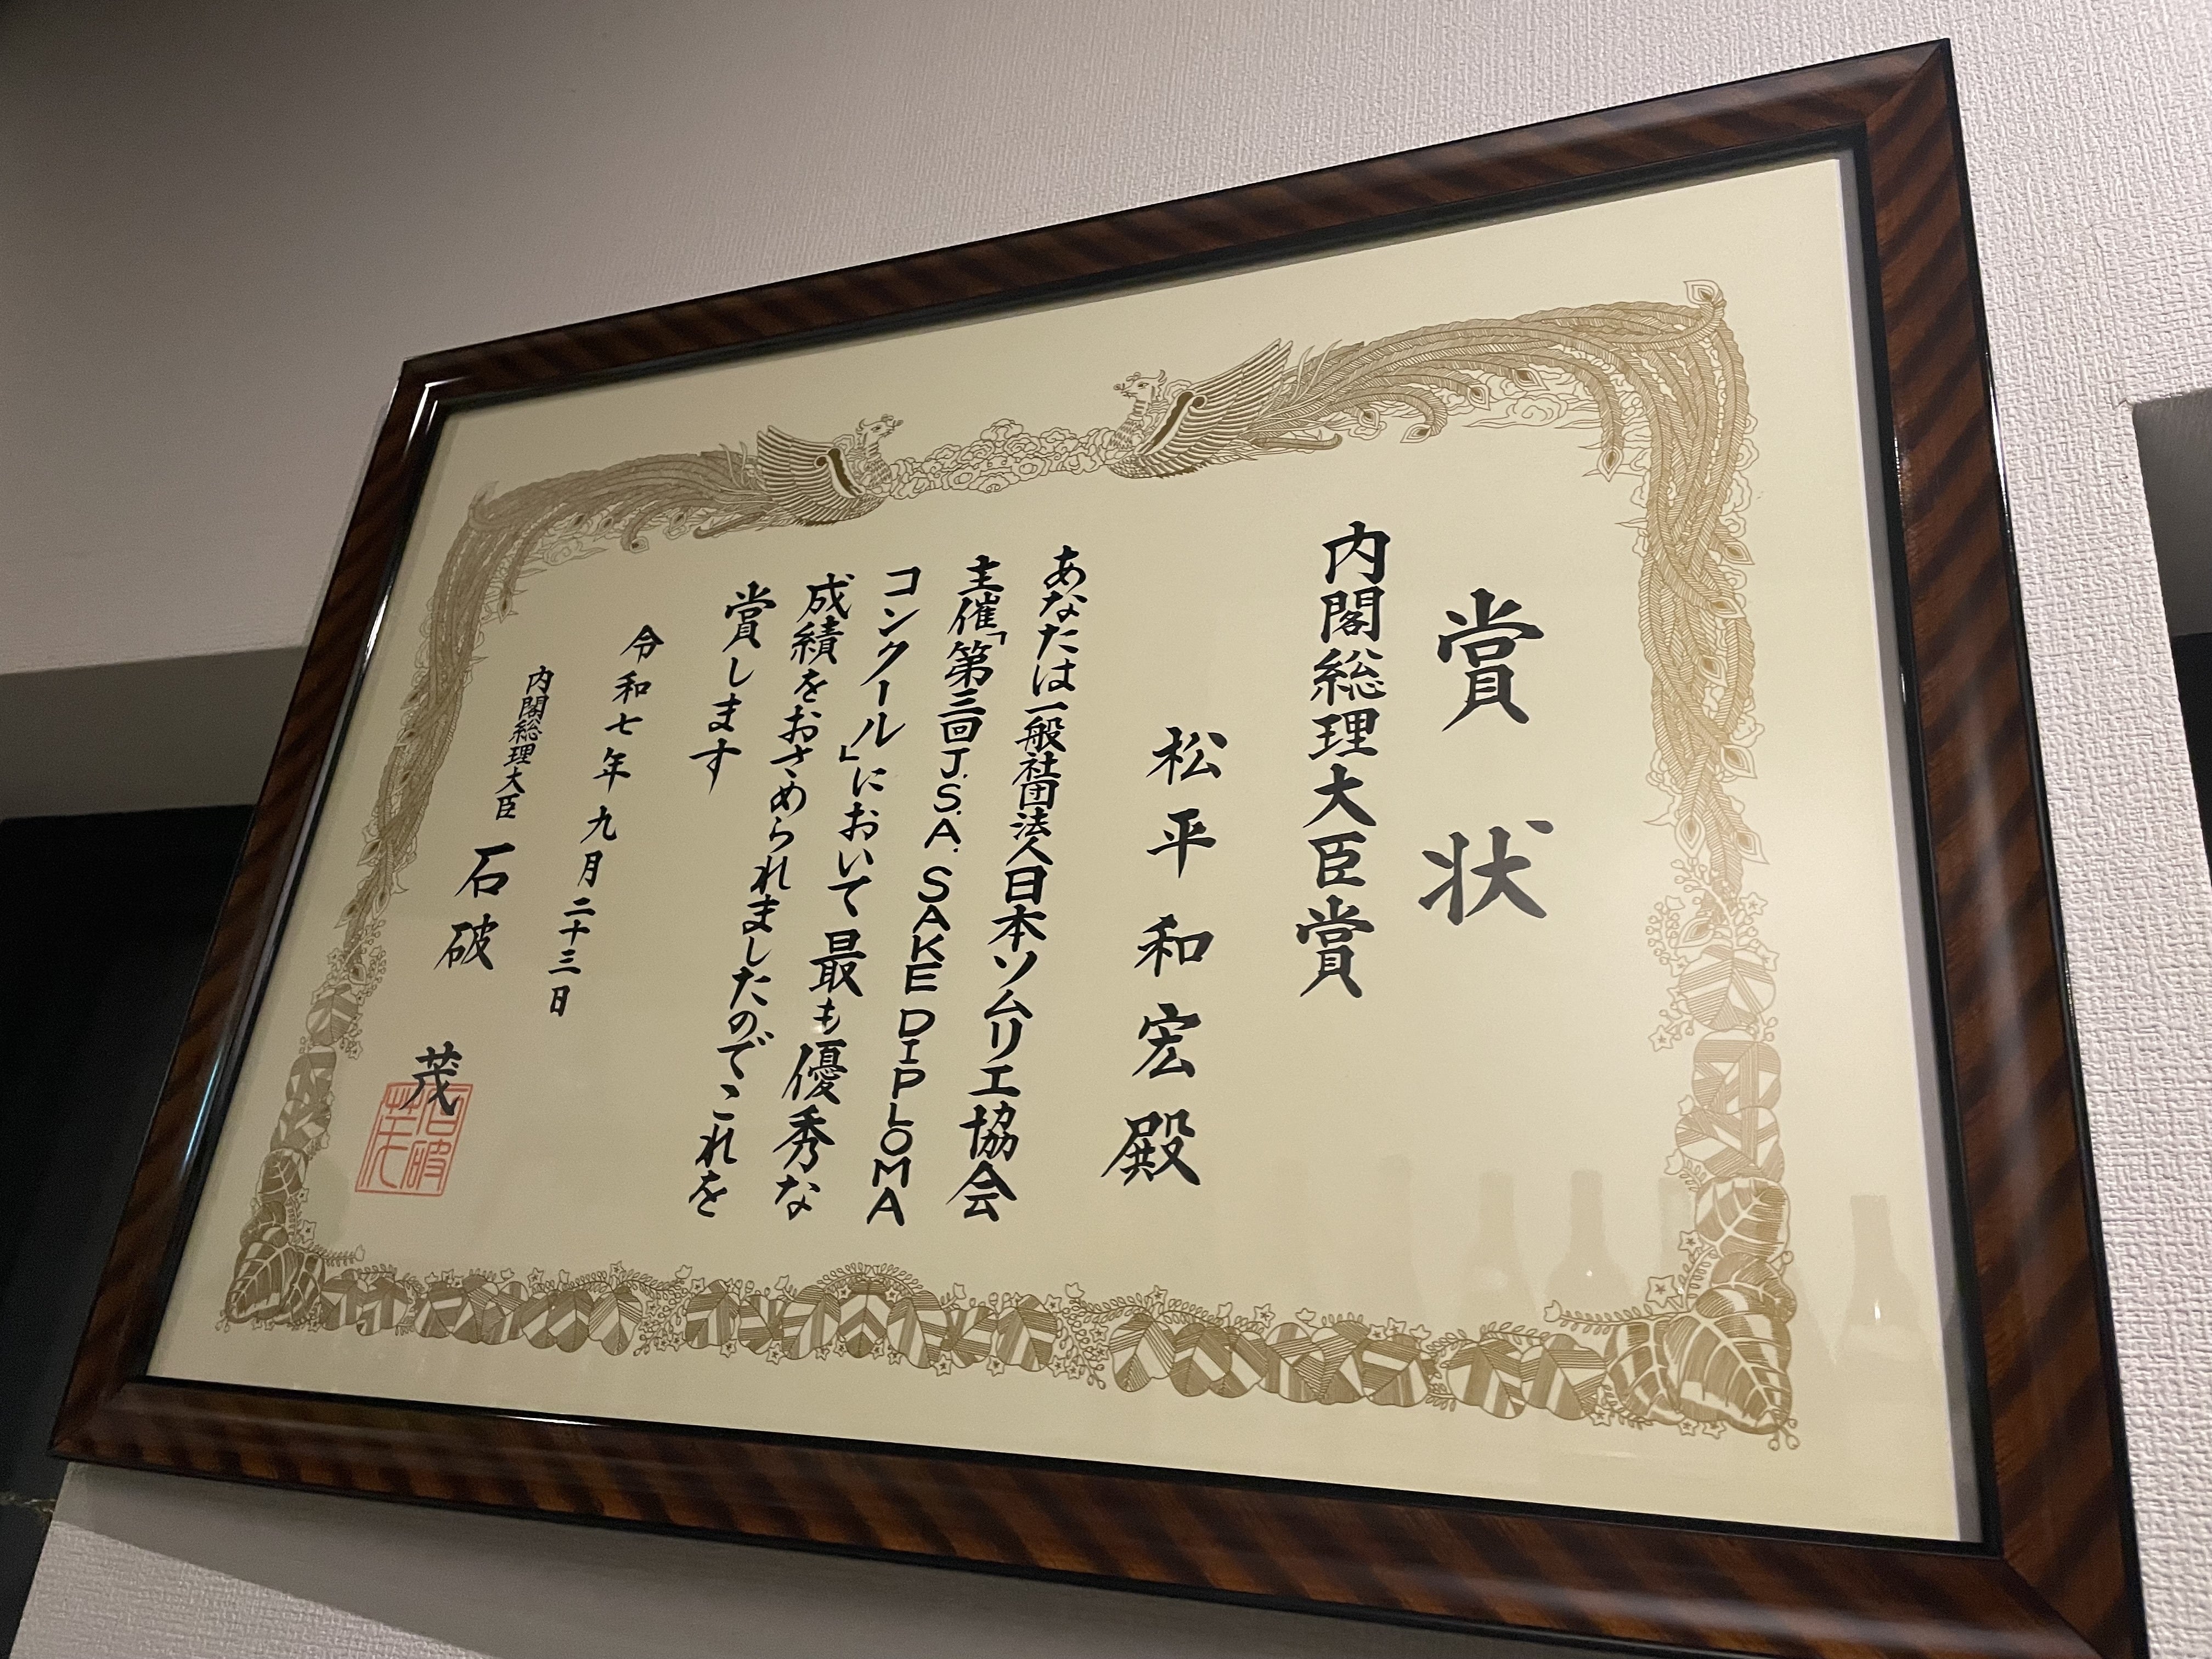 賞状
内閣総理大臣賞
松平和宏殿
あなたは一般社団法人日本ソムリエ協会
主催「第三回J.S.A.SAKE DIPLOMA
コンクール」において最も優秀な
成績をおさめられましたのでこれを
賞します
令和七年九月二十三日
内閣総理大臣 石破 茂
石破
茂